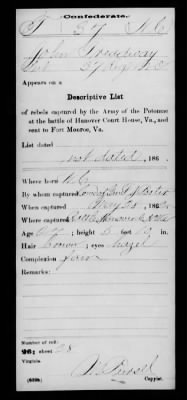 Confederate.
T 37 N.C.
John Treadway
37 Reg't N.C.
Appears on a
Descriptive List
of rebels captured by the Army of the Potomac
at the battle of Hanover Court House, Va., and
sent to Fort Monroe, Va.
List dated
not dated, 186 .
Where born N.C.
By whom captured
When captured May 28, 186
Where captured
Age ; height 5 feet in.
Hair brown; eyes hazel
Complexion fair
Remarks:
Number of roll:
26; sheet 28
Virginia.
Copyist.